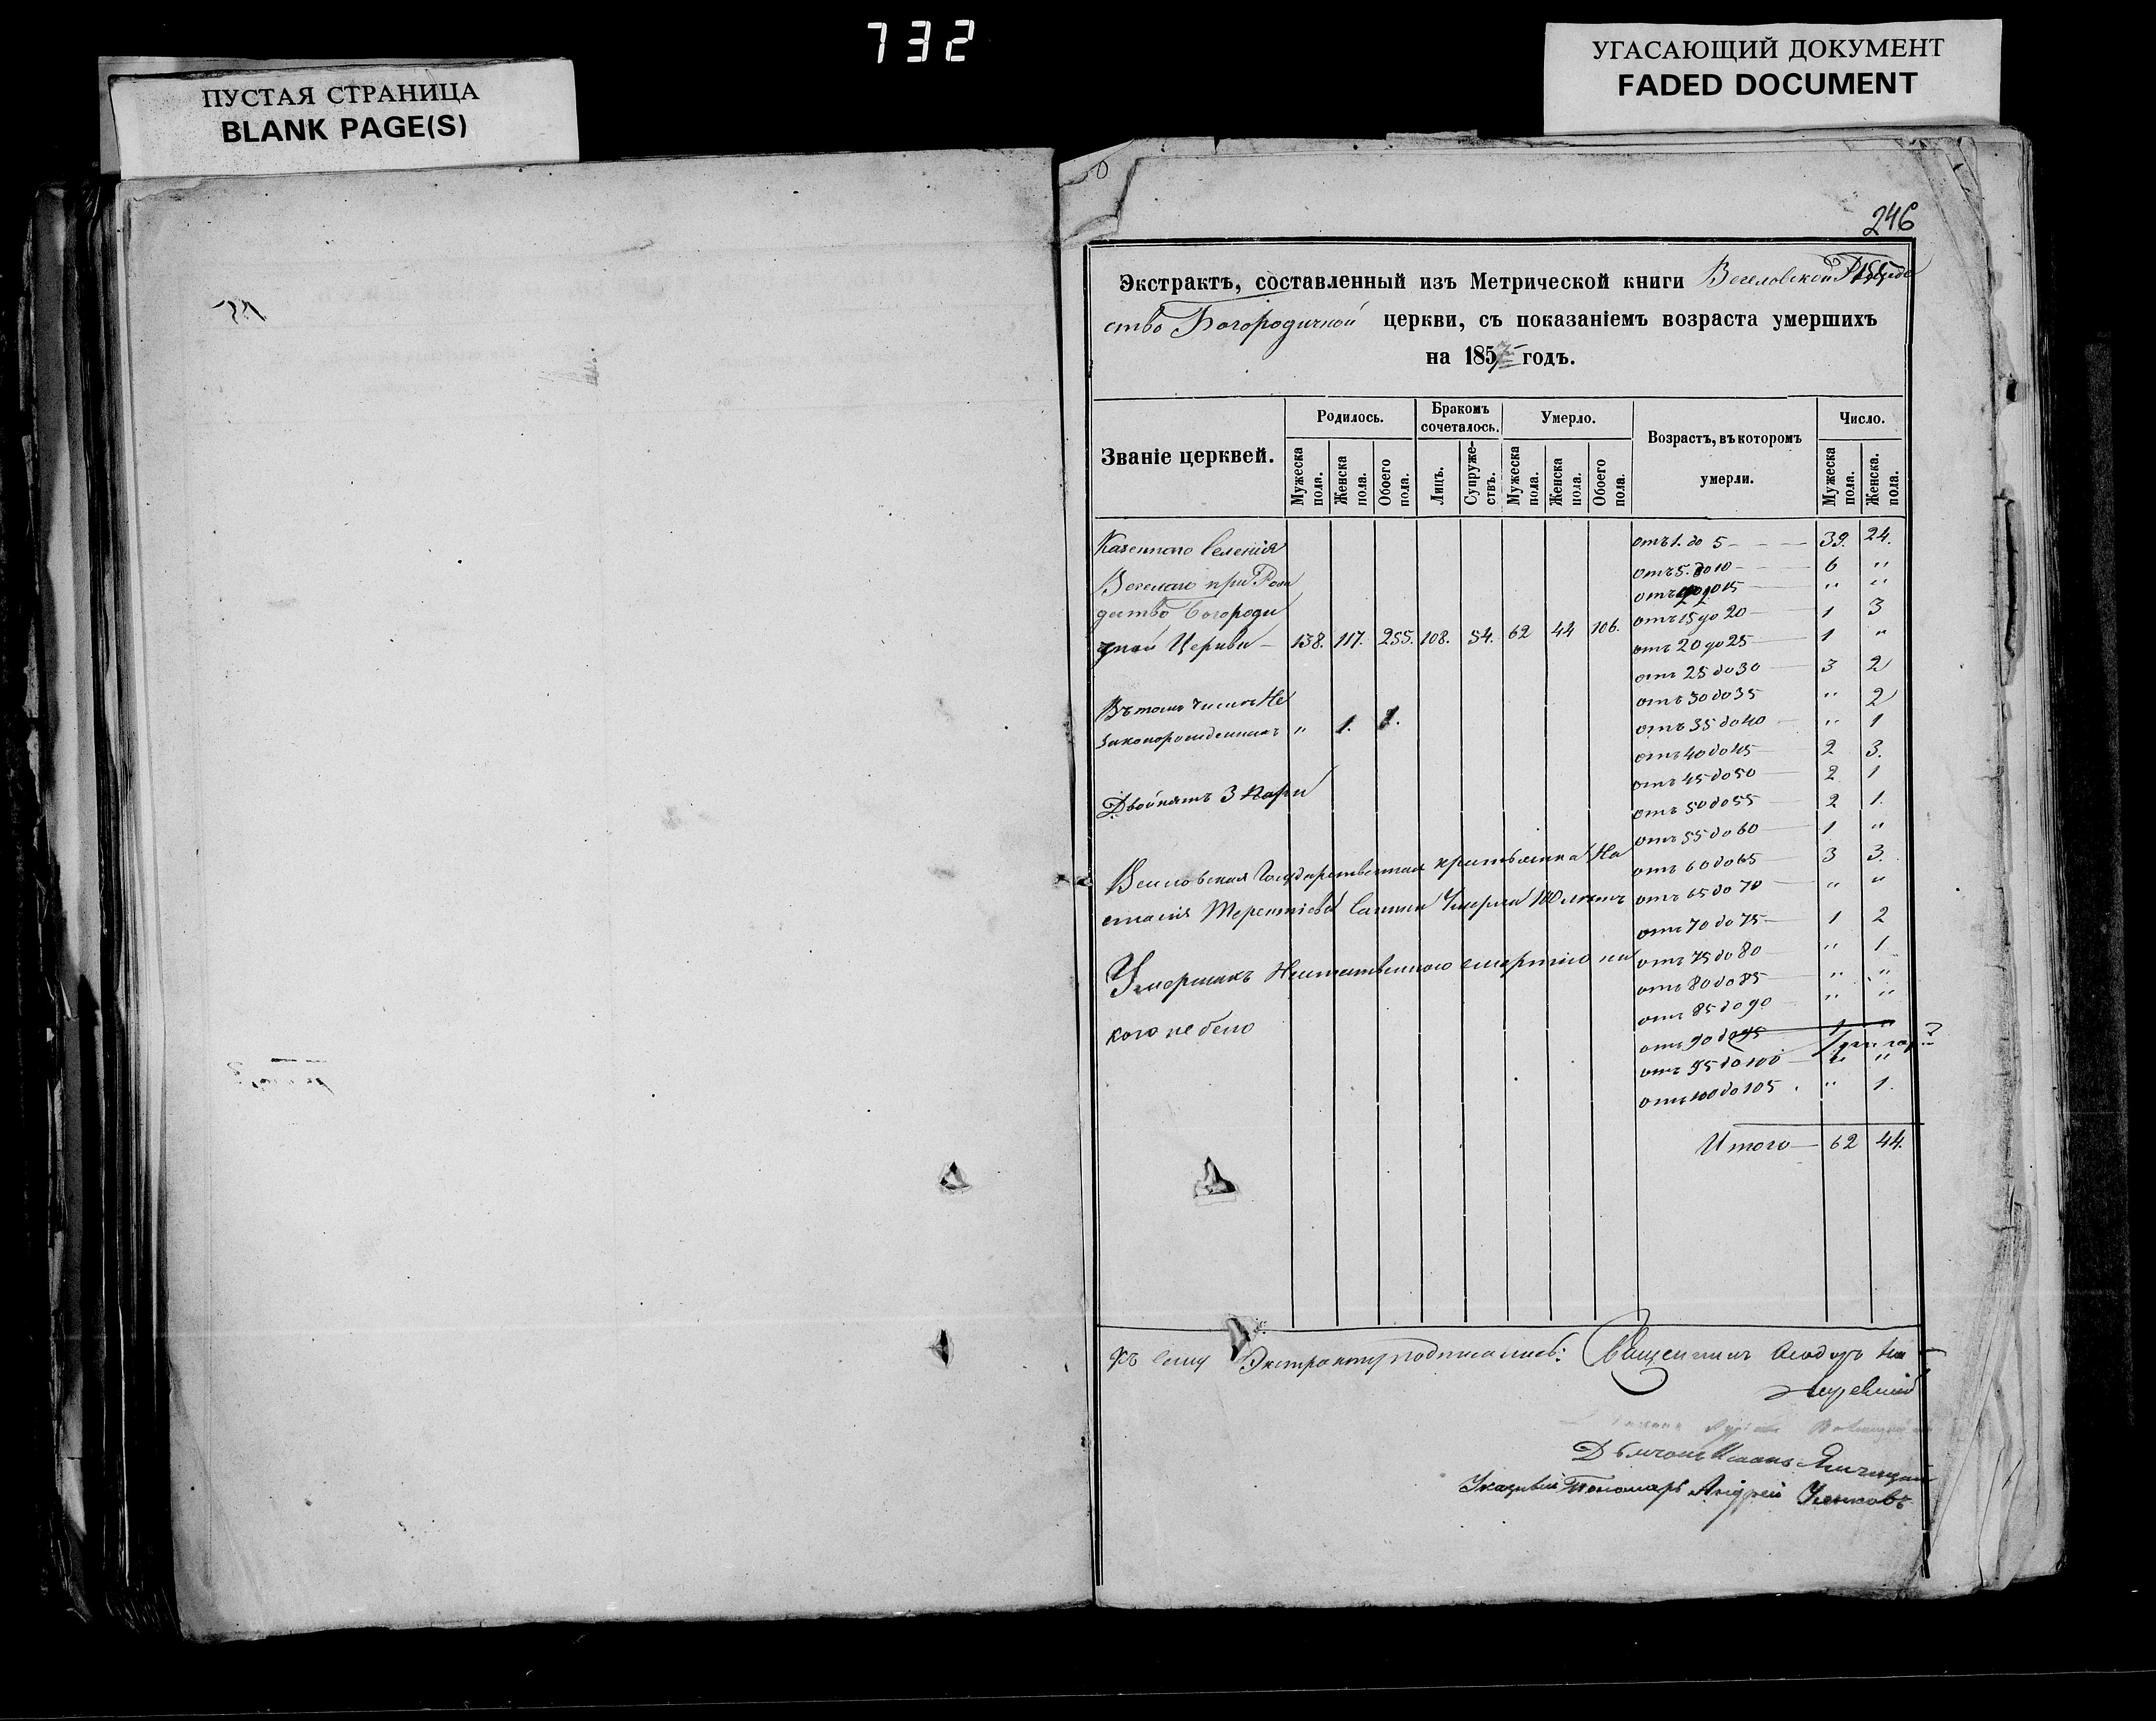 732
ПУСТАЯ СТРАНИЦА
BLANK PAGE(S)
УГАСАЮЩИЙ ДОКУМЕНТ
FADED DOCUMENT
246
Экстрактъ, составленный изъ Метрической книги Веселовской Рожде
ство Богородичной церкви, съ показаніемъ возраста умершихъ
на 1857 годъ.
Званіе церквей.
Родилось.
Бракомъ сочеталось.
Умерло.
Возрастъ, въ которомъ умерли.
Число.
Мужеска пола.
Женска пола.
Обоего пола.
Лицъ.
Супруже-ствъ.
Мужеска пола.
Женска пола.
Обоего пола.
Мужеска пола.
Женска. пола.
Казеннаго Селенія
Веселаго при Рож
дество Богороди
чной Церкви – 138. 117. 255. 108. 54. 62 44 106.
Въ томъ числѣ Не
законорожденныхъ " 1. 1.
Двойнятъ 3 пары
Веселовская Государственная крестьянка На
стасія Терентіева Умерла 100 лѣтъ
Умершихъ Неестественною смертію ни
кого не было
отъ 1. до 5 – 39. 24.
отъ 5. до 10 – 6 "
отъ 10 до 15 " "
отъ 15 до 20 – 1 3
отъ 20 до 25 – 1 "
отъ 25 до 30 – 3 2
отъ 30 до 35 " 2
отъ 35 до 40 " 1
отъ 40 до 45 2 3.
отъ 45 до 50 2 1
отъ 50 до 55 2 1.
отъ 55 до 60 1 "
отъ 60 до 65 3 3.
отъ 65 до 70 " "
отъ 70 до 75 – 1 2
отъ 75 до 80 " 1
отъ 80 до 85 " "
отъ 85 до 90 " "
отъ 90 до 95 1 "
отъ 95 до 100 "
отъ 100 до 105 . " 1.
Итого – 62 44.
Къ сему Экстракту подписались: Священникъ Ѳеодоръ
Дьячокъ
Указный Пономарь Андрей